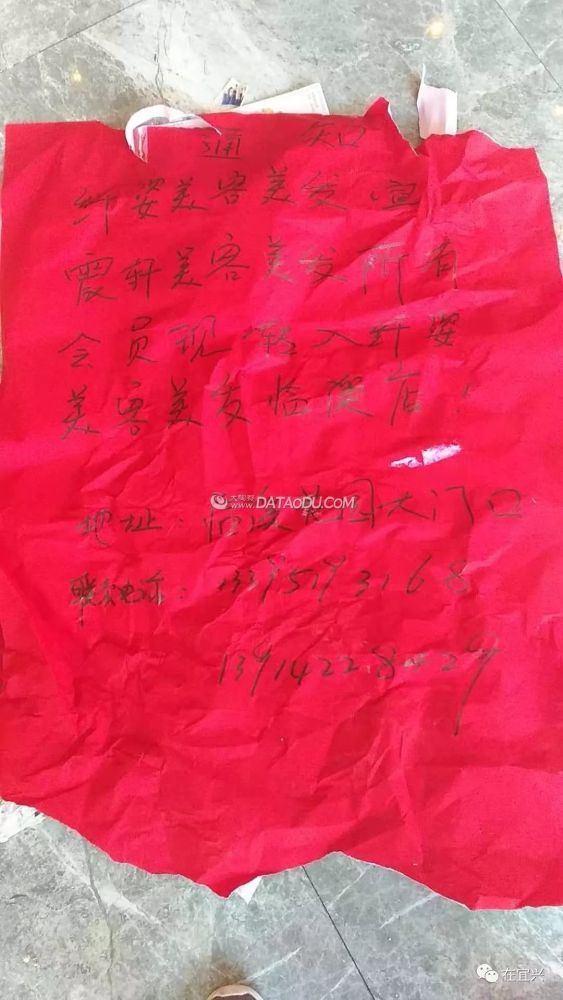 通 知
纤姿美容美发,宣
震轩美容美发所有
会员现转入纤姿
美容美发临溪店!
大陶都 www.DATAoDU.COM
地址:花园大门口
联系电话:
13914228429
在宜兴